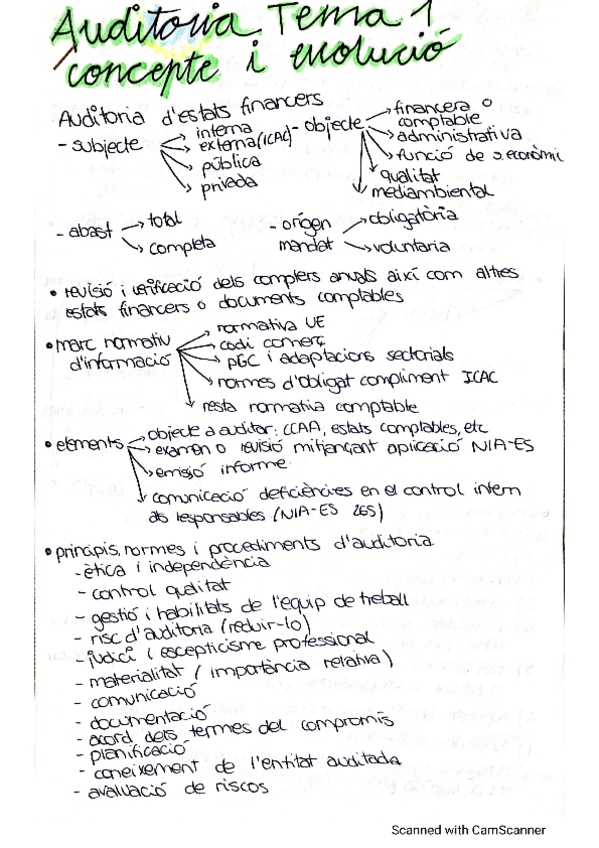 Auditoria. Tema 1
concepte i evolució
Auditoria d'estats financers
- subjecte → interna
→ externa (ICAC)
→ pública
→ privada
- objecte → financera o
comptable
→ administrativa
→ funció de s. econòmi
→ qualitat
→ mediambiental
- abast → total
→ completa
- orígen
mandat → obligatòria
→ voluntaria
• revisió i verificació dels comptes anuals així com altres
estats financers o documents comptables
• marc normatiu
d'informació → normativa UE
→ codi comerç
→ PGC i adaptacions sectorials
→ normes d'obligat compliment ICAC
→ resta normativa comptable
• elements → objecte a auditar: CCAA, estats comptables, etc
→ examen o revisió mitjançant aplicació NIA-ES
→ emisió informe
→ comunicació deficiències en el control intern
als responsables (NIA-ES 265)
• principis, normes i procediments d'auditoria.
- ètica i independència
- control qualitat
- gestió i habilitats de l'equip de treball
- risc d'auditoria (reduir-lo)
- judici i escepticisme professional
- materialitat (importància relativa)
- comunicació
- documentació
- acord dels termes del compromís
- planificació
- coneixement de l'entitat auditada
- avaluació de riscos
Scanned with CamScanner